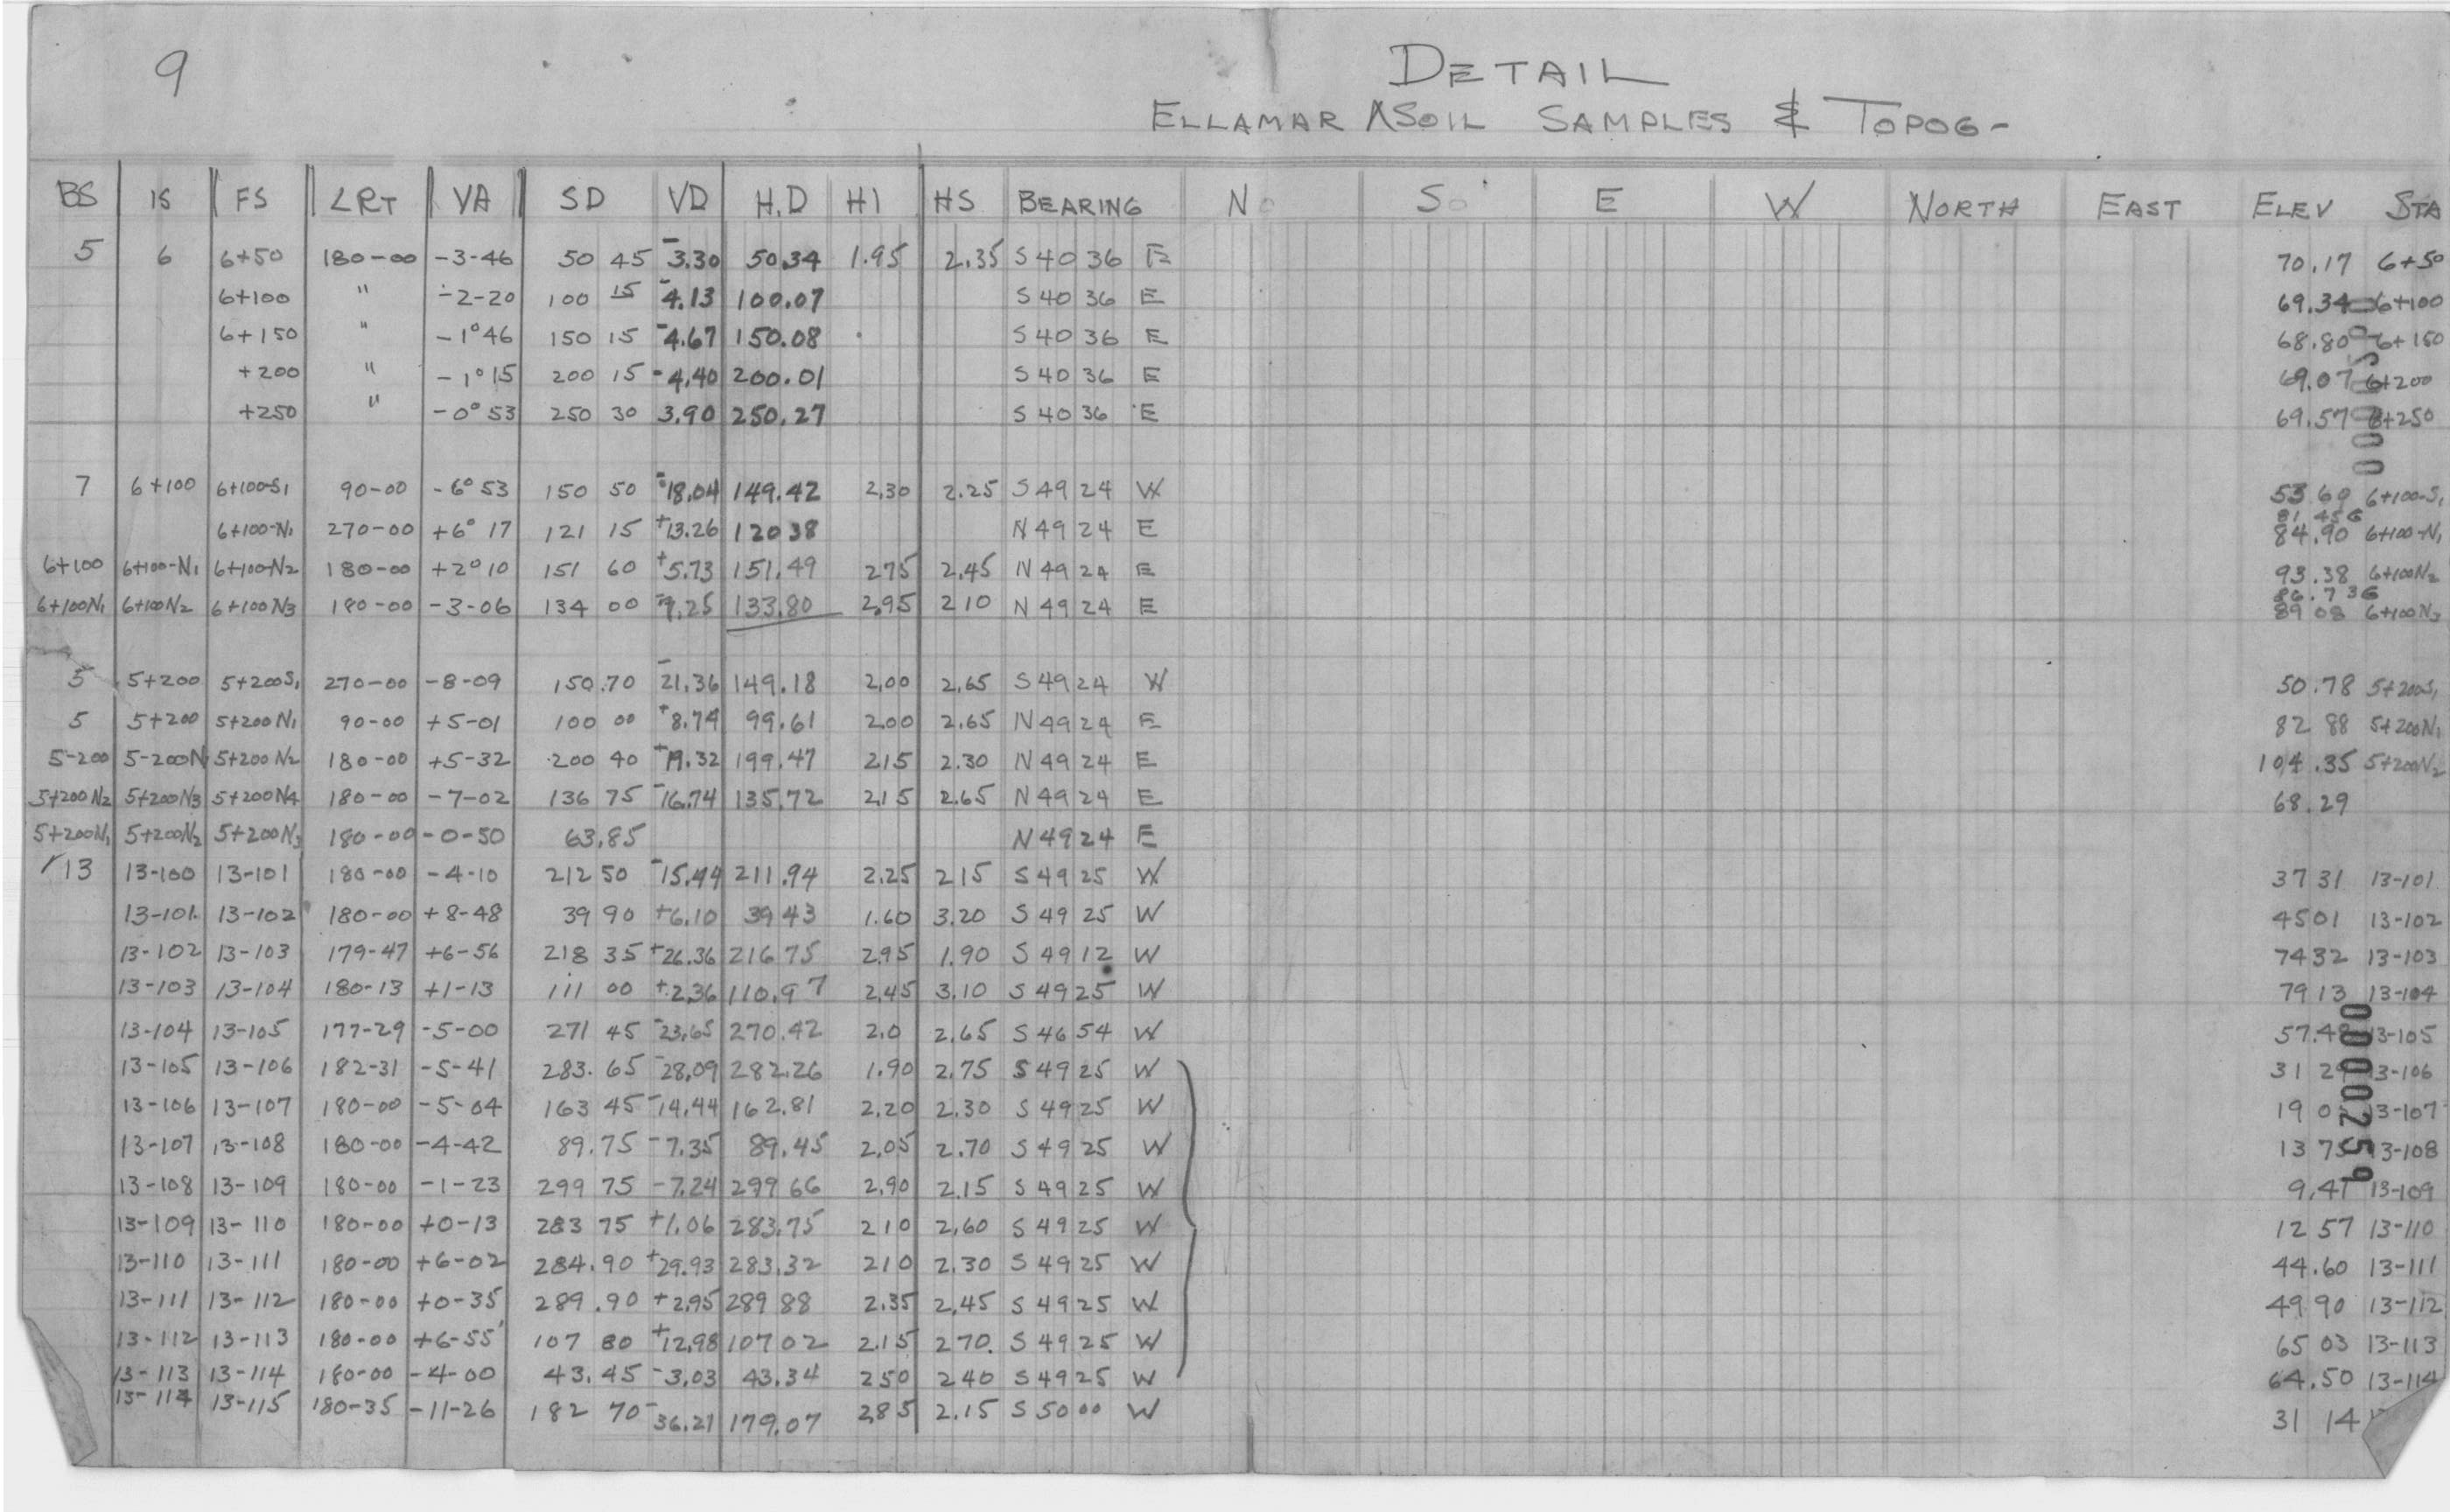 9
DETAIL
ELLAMAR SOIL SAMPLES & TOPOG-
BS IS FS LRT VA SD VD H.D HI HS BEARING N S E W NORTH EAST ELEV STA
5 6 6+50 180-00 -3-46 50 45 -3.30 50.34 1.95 2.35 S 40 36 E 70.17 6+50
6+100 " -2-20 100 15 -4.13 100.07 S 40 36 E 69.34 6+100
6+150 " -1°46 150 15 -4.67 150.08 S 40 36 E 68.80 6+150
+200 " -1°15 200 15 -4.40 200.01 S 40 36 E 69.07 6+200
+250 " -0°53 250 30 3.90 250.27 S 40 36 E 69.57 6+250
7 6+100 6+100-S1 90-00 -6°53 150 50 -18.04 149.42 2.30 2.25 S 49 24 W 53 60 6+100-S1
81.45G
6+100-N1 270-00 +6°17 121 15 +13.26 120 38 N 49 24 E 84.90 6+100-N1
6+100 6+100-N1 6+100-N2 180-00 +2°10 151 60 +5.73 151.49 275 2.45 N 49 24 E 93.38 6+100N2
86.73G
6+100N1 6+100N2 6+100N3 180-00 -3-06 134 00 -7.25 133.80 2.95 210 N 49 24 E 89 08 6+100N3
5 5+200 5+200S1 270-00 -8-09 150.70 -21.36 149.18 2.00 2.65 S 49 24 W 50.78 5+200S1
5 5+200 5+200N1 90-00 +5-01 100 00 +8.74 99.61 200 2.65 N 49 24 E 82 88 5+200N1
5-200 5-200N 5+200N2 180-00 +5-32 200 40 +19.32 199.47 215 2.30 N 49 24 E 104.35 5+200N2
5+200N2 5+200N3 5+200N4 180-00 -7-02 136 75 -16.74 135.72 215 2.65 N 49 24 E 68.29
5+200N1 5+200N2 5+200N3 180-00 -0-50 63.85 N 49 24 E
13 13-100 13-101 180-00 -4-10 212 50 -15.44 211.94 2.25 215 S 49 25 W 37 31 13-101
13-101 13-102 180-00 +8-48 39 90 +6.10 39 43 1.60 3.20 S 49 25 W 45 01 13-102
13-102 13-103 179-47 +6-56 218 35 +26.36 216 75 295 1.90 S 49 12 W 74 32 13-103
13-103 13-104 180-13 +1-13 111 00 +2.36 110.97 2.45 3.10 S 49 25 W 79 13 13-104
13-104 13-105 177-29 -5-00 271 45 -23.65 270.42 2.0 2.65 S 46 54 W 57.48 13-105
13-105 13-106 182-31 -5-41 283.65 -28.09 282.26 1.90 2.75 S 49 25 W 31 13-106
13-106 13-107 180-00 -5-04 163 45 -14.44 162.81 2.20 2.30 S 49 25 W 19 13-107
13-107 13-108 180-00 -4-42 89.75 -7.35 89.45 2.05 2.70 S 49 25 W 13 75 13-108
13-108 13-109 180-00 -1-23 299 75 -7.24 299 66 2.90 2.15 S 49 25 W 9.41 13-109
13-109 13-110 180-00 +0-13 283 75 +1.06 283.75 210 2.60 S 49 25 W 12 57 13-110
13-110 13-111 180-00 +6-02 284.90 +29.93 283.32 210 2.30 S 49 25 W 44.60 13-111
13-111 13-112 180-00 +0-35 289.90 +2.95 289 88 2.35 2.45 S 49 25 W 49 90 13-112
13-112 13-113 180-00 +6-55 107 80 +12.98 107 02 2.15 270 S 49 25 W 65 03 13-113
13-113 13-114 180-00 -4-00 43.45 -3.03 43.34 250 240 S 49 25 W 64.50 13-114
13-114 13-115 180-35 -11-26 182 70 -36.21 179.07 285 2.15 S 50 00 W 31 14
0000259